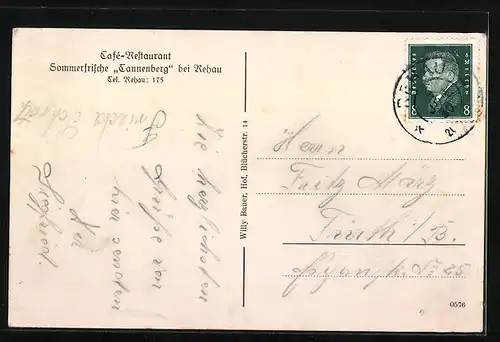 Café-Restaurant
Sommerfrische „Tannenberg“ bei Rehau
Tel. Rehau: 175
Die herzlichsten
Grüße von
hier senden
Siegfried.
Willy Bauer, Hof, Blücherstr. 14
DEUTSCHES REICH
8 8
Herrn
Fritz März
Fürth i/B.
Nr. 25
0576